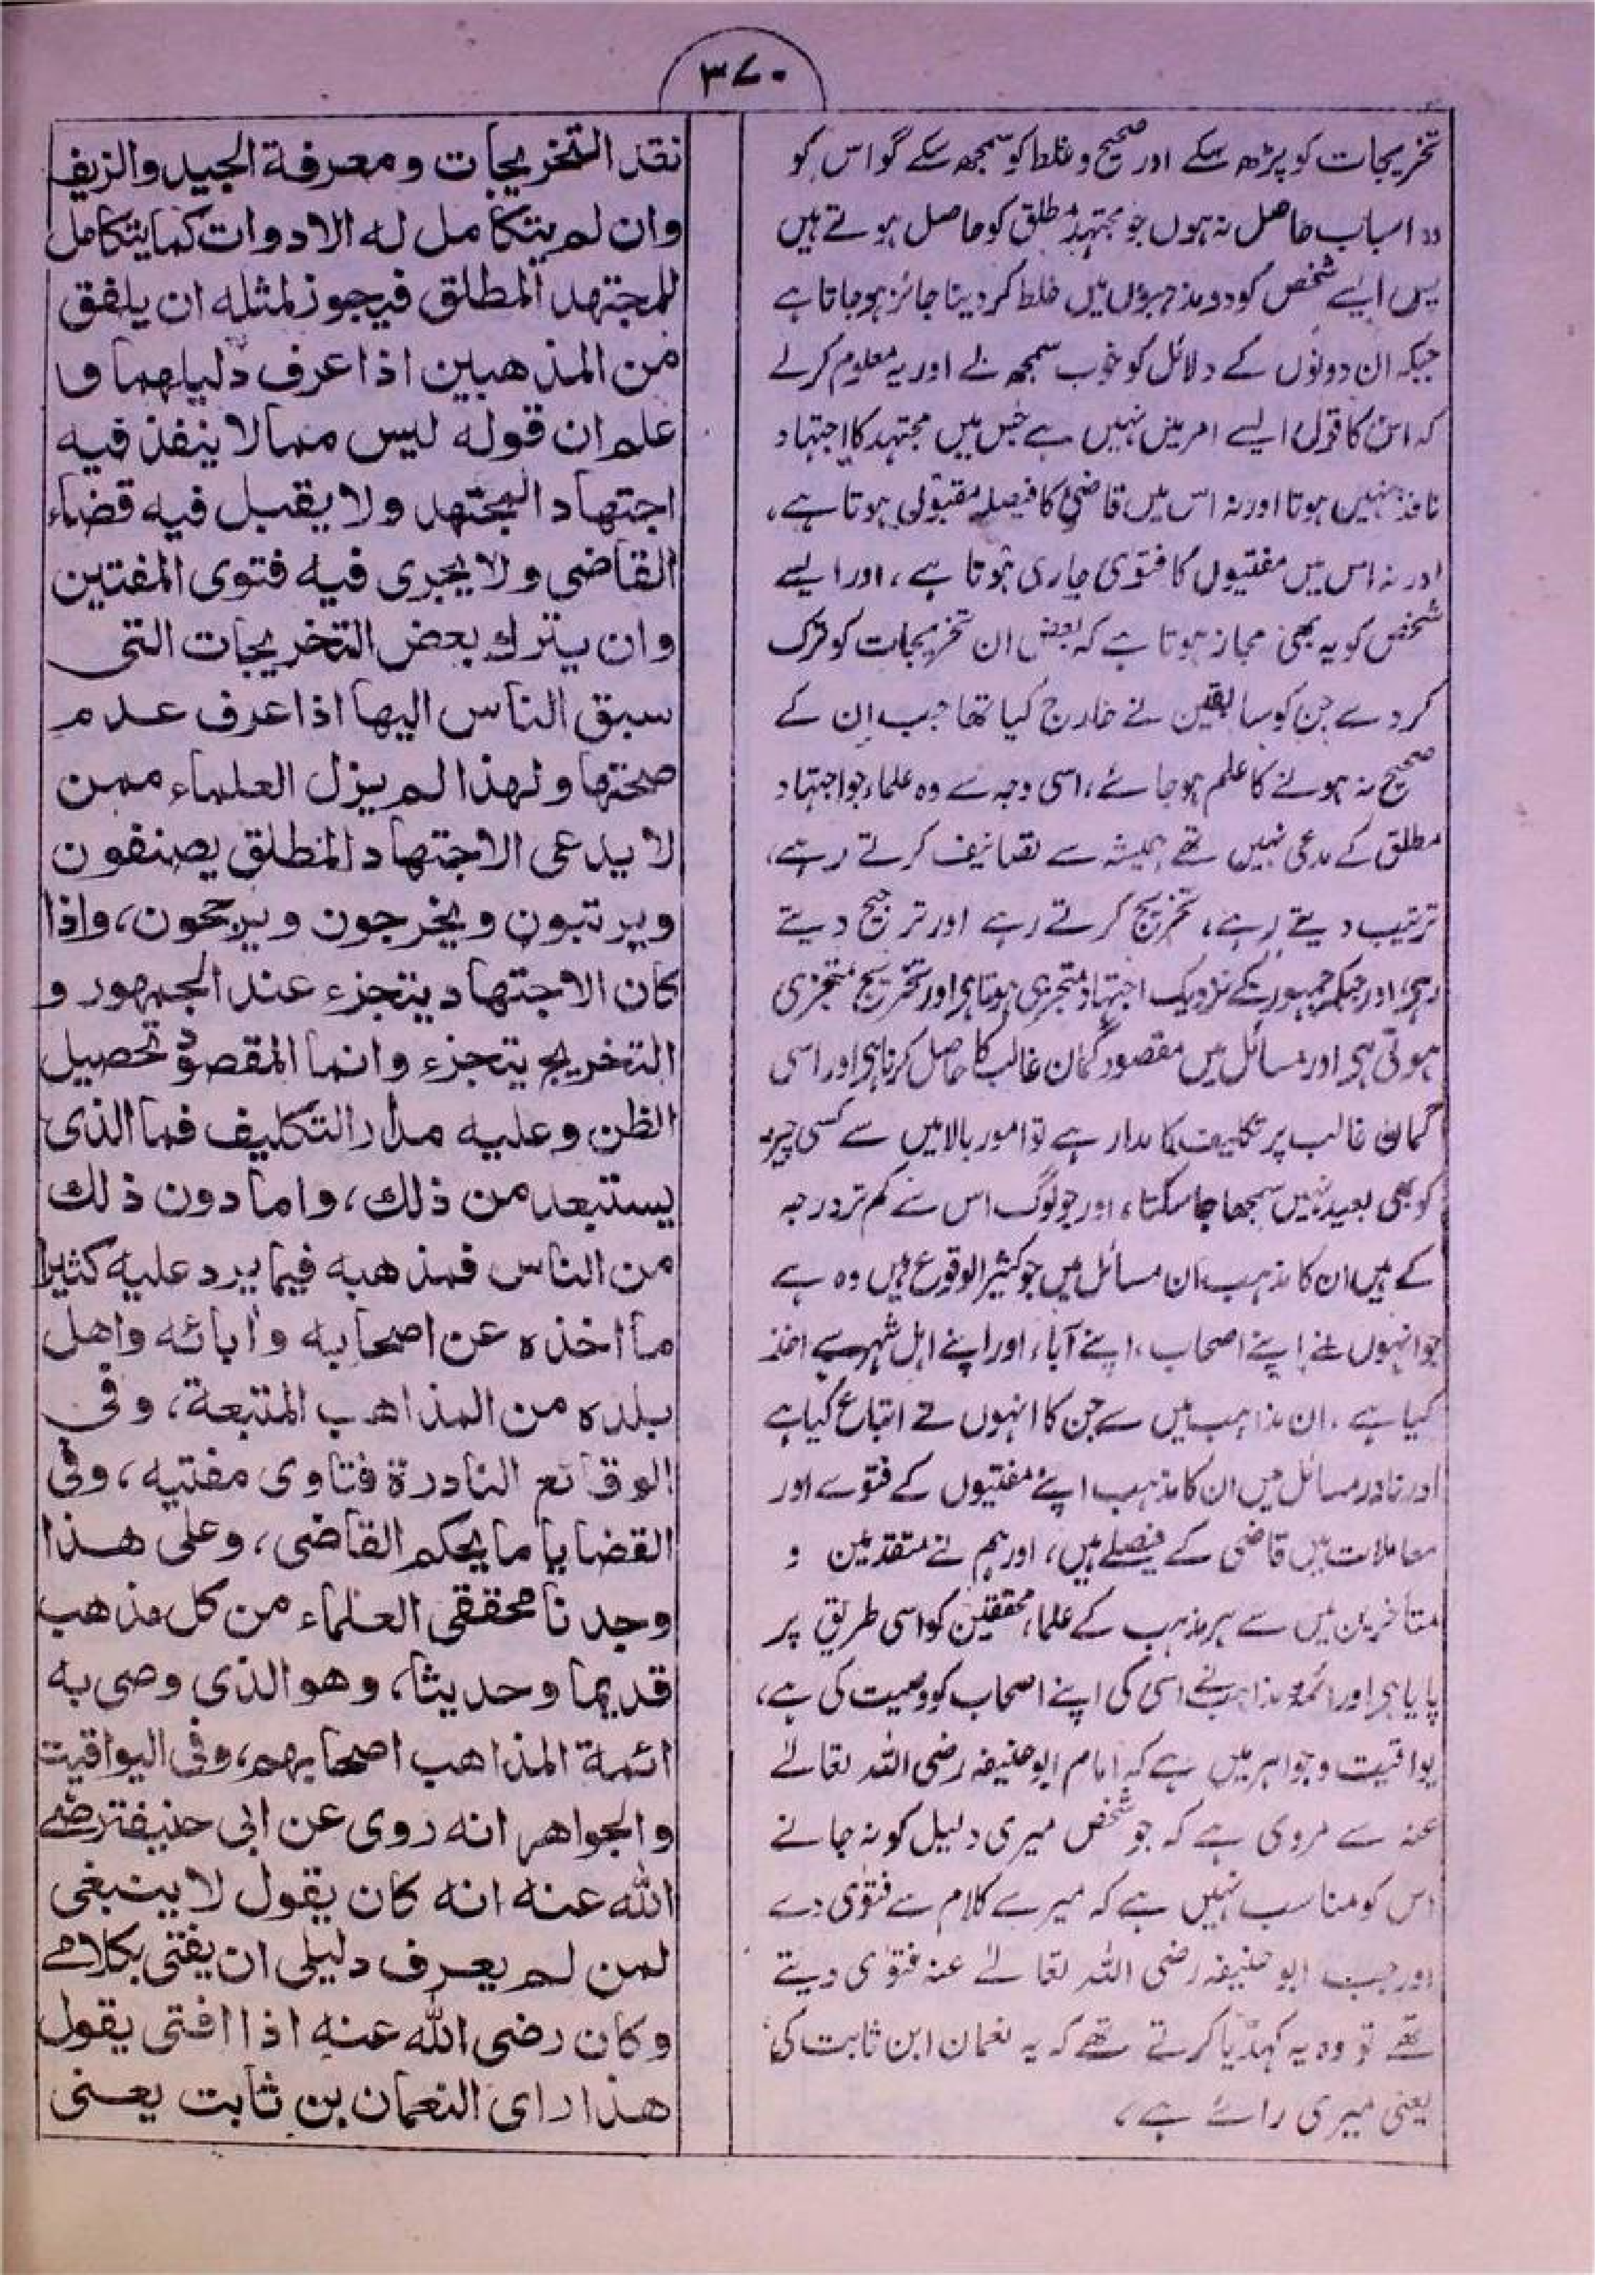 ۳۷۰
تخریجات کو پڑھ سکے اور صحیح و غلط کو سمجھ سکے گو اس کو
وہ اسباب حاصل نہ ہوں جو مجتہد مطلق کو حاصل ہوتے ہیں
پس ایسے شخص کو دو مذہبوں میں خلط کر دینا جائز ہو جاتا ہے
جبکہ ان دونوں کے دلائل کو خوب سمجھ لے اور یہ معلوم کر لے
کہ اس کا قول ایسے امر میں نہیں ہے جس میں مجتہد کا اجتہاد
نافذ نہیں ہوتا اور نہ اس میں قاضی کا فیصلہ مقبول ہوتا ہے،
اور نہ اس میں مفتیوں کا فتویٰ جاری ہوتا ہے، اور ایسے
شخص کو یہ بھی مجاز ہوتا ہے کہ بعض ان تخریجات کو ترک
کر دے جن کو سابقین نے خارج کیا تھا جب ان کے
صحیح نہ ہونے کا علم ہو جائے، اسی وجہ سے وہ علماء جو اجتہاد
مطلق کے مدعی نہیں تھے ہمیشہ سے تصانیف کرتے رہے،
ترتیب دیتے رہے، تخریج کرتے رہے اور ترجیح دیتے
رہی، اور جبکہ جمہور کے نزدیک اجتہاد متجزی ہوتا ہی اور تخریج متجزی
ہوتی ہی اور مسائل میں مقصود گمان غالب کا حاصل کرنا ہی اور اسی
گمان غالب پر تکلیف کا مدار ہے تو امور بالا میں سے کسی چیز
کو بھی بعید نہیں سمجھا جا سکتا، اور جو لوگ اس سے کم تر درجہ
کے ہیں ان کا مذہب ان مسائل میں جو کثیر الوقوع ہیں وہ ہے
جو انہوں نے اپنے اصحاب، اپنے آباء، اور اپنے اہل شہر سے اخذ
کیا ہے، ان مذاہب میں سے جن کا انہوں نے اتباع کیا ہے
اور نادر مسائل میں ان کا مذہب اپنے مفتیوں کے فتوے اور
معاملات میں قاضی کے فیصلے ہیں، اور ہم نے متقدمین و
متأخرین میں سے ہر مذہب کے علماء محققین کو اسی طریق پر
پایا ہی اور ائمہ مذاہب نے اسی کی اپنے اصحاب کو وصیت کی ہے،
یواقیت و جواہر میں ہے کہ امام ابو حنیفہ رضی اللہ تعالےٰ
عنہ سے مروی ہے کہ جو شخص میری دلیل کو نہ جانے
اس کو مناسب نہیں ہے کہ میرے کلام سے فتویٰ دے
اور جب ابو حنیفہ رضی اللہ تعالےٰ عنہ فتویٰ دیتے
تھے تو وہ یہ کہدیا کرتے تھے کہ یہ نعمان ابن ثابت کی
یعنی میری رائے ہے،
نقد التخريجات ومعرفة الجيد والزيف
وان لم يتكامل له الادوات كما يتكامل
للمجتهد المطلق فيجوز لمثله ان يلفق
من المذهبين اذا عرف دليلهما و
علم ان قوله ليس مما لا ينفذ فيه
اجتهاد المجتهد ولا يقبل فيه قضاء
القاضى ولا يجرى فيه فتوى المفتين
وان يترك بعض التخريجات التى
سبق الناس اليها اذا عرف عدم
صحتها ولهذا لم يزل العلماء ممن
لا يدعى الاجتهاد المطلق يصنفون
ويرتبون ويخرجون ويرجحون، واذا
كان الاجتهاد يتجزء عند الجمهور و
التخريج يتجزء وانما المقصود تحصيل
الظن وعليه مدار التكليف فما الذى
يستبعد من ذلك، واما دون ذلك
من الناس فمذهبه فيما يرد عليه كثيرا
ما اخذه عن اصحابه وآبائه واهل
بلده من المذاهب المتبعة، وفى
الوقائع النادرة فتاوى مفتيه، وفى
القضايا ما يحكم القاضى، وعلى هذا
وجدنا محققى العلماء من كل مذهب
قديما وحديثا، وهو الذى وصى به
ائمة المذاهب اصحابهم، وفى اليواقيت
والجواهر انه روى عن ابى حنيفة رضے
الله عنه انه كان يقول لا ينبغى
لمن لم يعرف دليلى ان يفتى بكلامے
وكان رضى الله عنه اذا افتى يقول
هذا راى النعمان بن ثابت يعنى